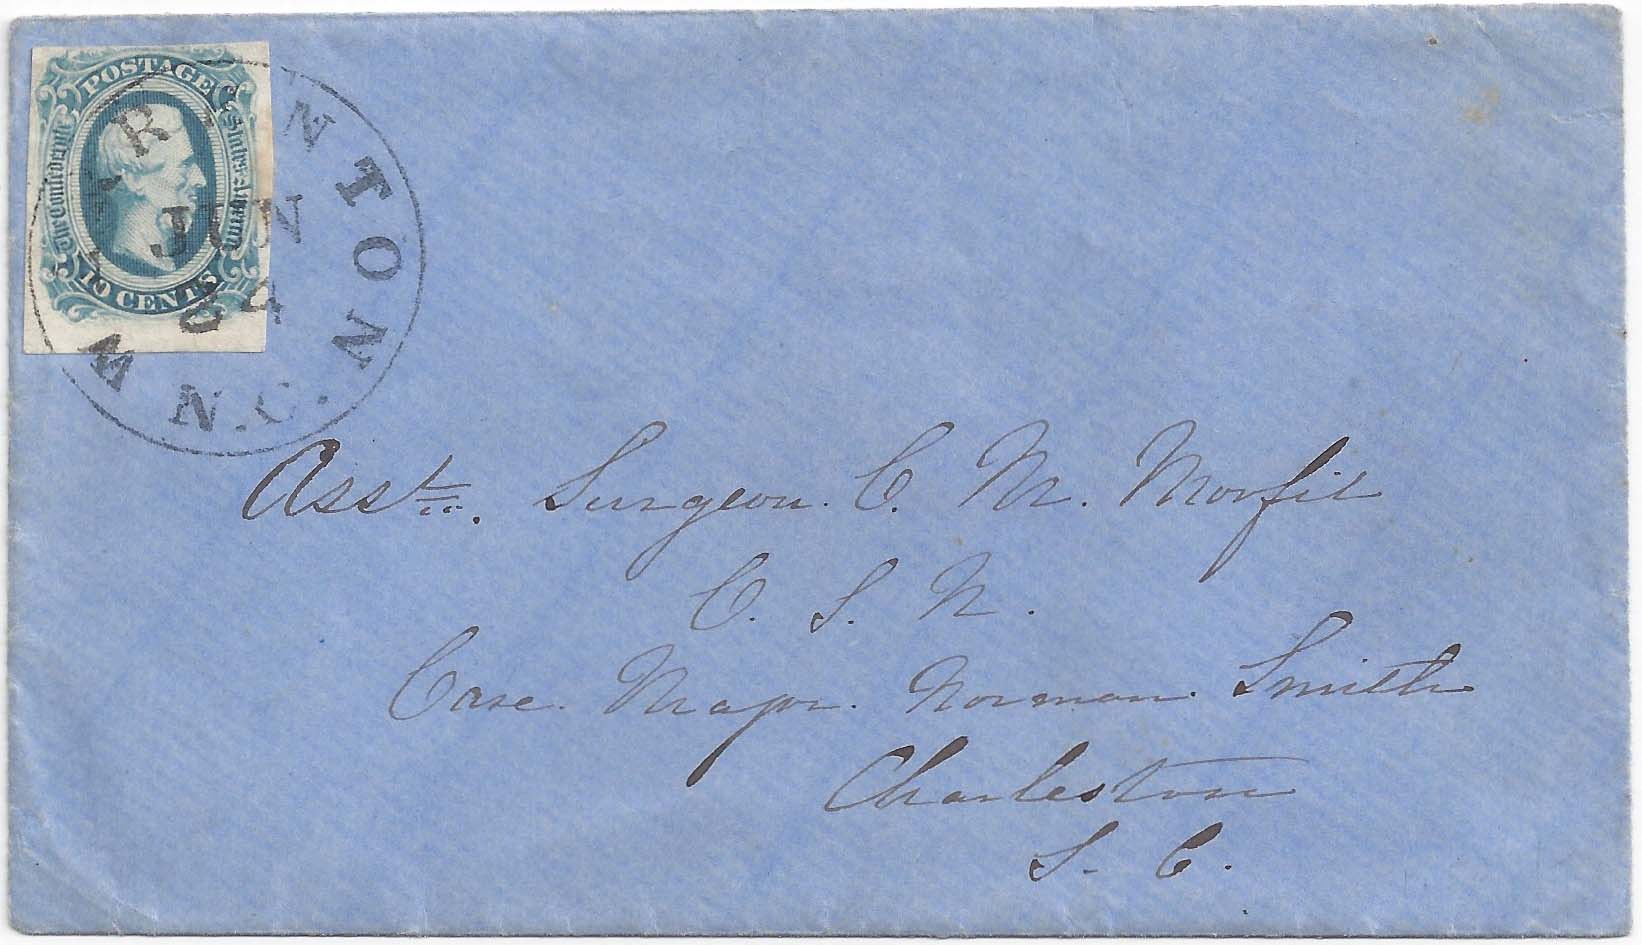 POSTAGE
The Confederate States America
10 CENTS
WARRENTON N.C.
JUN
24
Asst. Surgeon. C. M. Morfit
C. S. N.
Care Major. Norman Smith
Charleston
S. C.